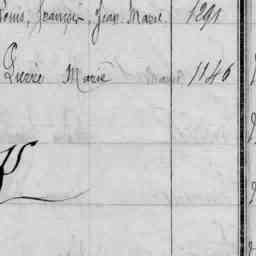 Louis, François, Jean Marie. 1291
Pierre Marie 1146